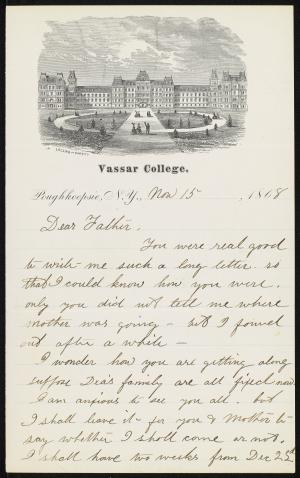 Vassar College.
Poughkeepsie, N.Y., Nov 15, 1868
Dear Father,
You were real good
to write me such a long letter. so
that I could know how you were,
only you did not tell me where
mother was going - but I found
out after a while -
I wonder how you are getting along
suppose Dea's family are all fixed now
I am anxious to see you all. but
I shall leave it for you & Mother to
say whether I shall come or not.
I shall have two weeks from Dec 23d